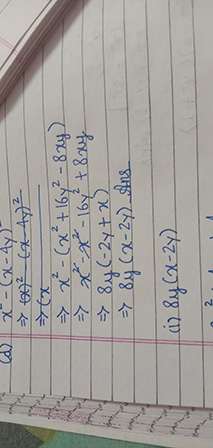 (d) x² - (x-4y)²
⇒ (x)² - (x-4y)²
⇒ (x
⇒ x² - (x² + 16y² - 8xy)
⇒ x² - x² - 16y² + 8xy
⇒ 8y (-2y + x)
⇒ 8y (x-2y) Ans
(i) 8y (x-2y)